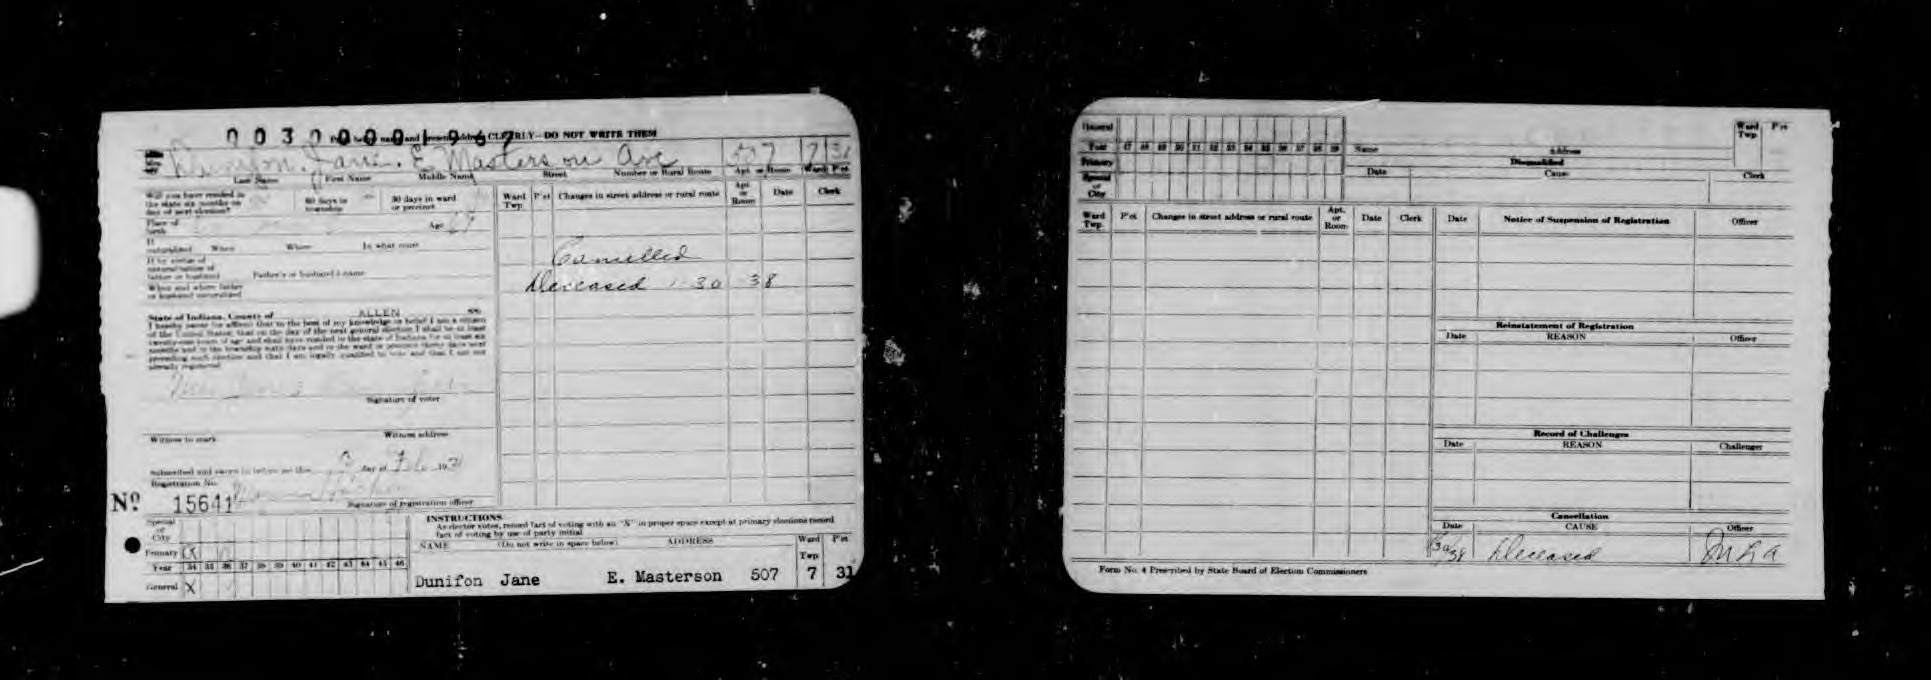 00300001967
CLEARLY—DO NOT WRITE THEM
Dunifon, Jane. E Masterson Ave 507 7 31
Last Name First Name Middle Name Street Number or Rural Route Apt. or Room Ward P'ct
Will you have resided in the state six months on day of next election? 60 days in township 30 days in ward or precinct
Place of birth Age
If naturalized When Where In what court
If by virtue of naturalization of father or husband Father's or husband's name
When and where father or husband naturalized
State of Indiana, County of ALLEN SS:
I hereby swear (or affirm) that to the best of my knowledge or belief I am a citizen
of the United States; that on the day of the next general election I shall be at least
twenty-one years of age and shall have resided in the state of Indiana for at least six
months and in the township sixty days and in the ward or precinct thirty days next
preceding such election and that I am legally qualified to vote and that I am not
already registered
Signature of voter
Witness to mark Witness address
Subscribed and sworn to before me this 3 day of Feb 193
Registration No.
Nº 15641
Signature of registration officer
Ward Twp. P'ct Changes in street address or rural route Apt. or Room Date Clerk
Cancelled
Deceased 1-30-38
Special or City
Primary
Year 34 35 36 37 38 39 40 41 42 43 44 45 46
General X
INSTRUCTIONS
As elector votes, record fact of voting with an "X" in proper space except at primary elections record
fact of voting by use of party initial
NAME (Do not write in space below) ADDRESS Ward Twp P'ct
Dunifon Jane E. Masterson 507 7 31
General
Year 47 48 49 50 51 52 53 54 55 56 57 58 59
Primary
Special or City
Name Address Ward Twp. P'ct
Disqualified
Date Cause Clerk
Ward Twp. P'ct Changes in street address or rural route Apt. or Room Date Clerk
Date Notice of Suspension of Registration Officer
Reinstatement of Registration
Date REASON Officer
Record of Challenges
Date REASON Challenger
Cancellation
Date CAUSE Officer
1/30/38 Deceased
Form No. 4 Prescribed by State Board of Election Commissioners